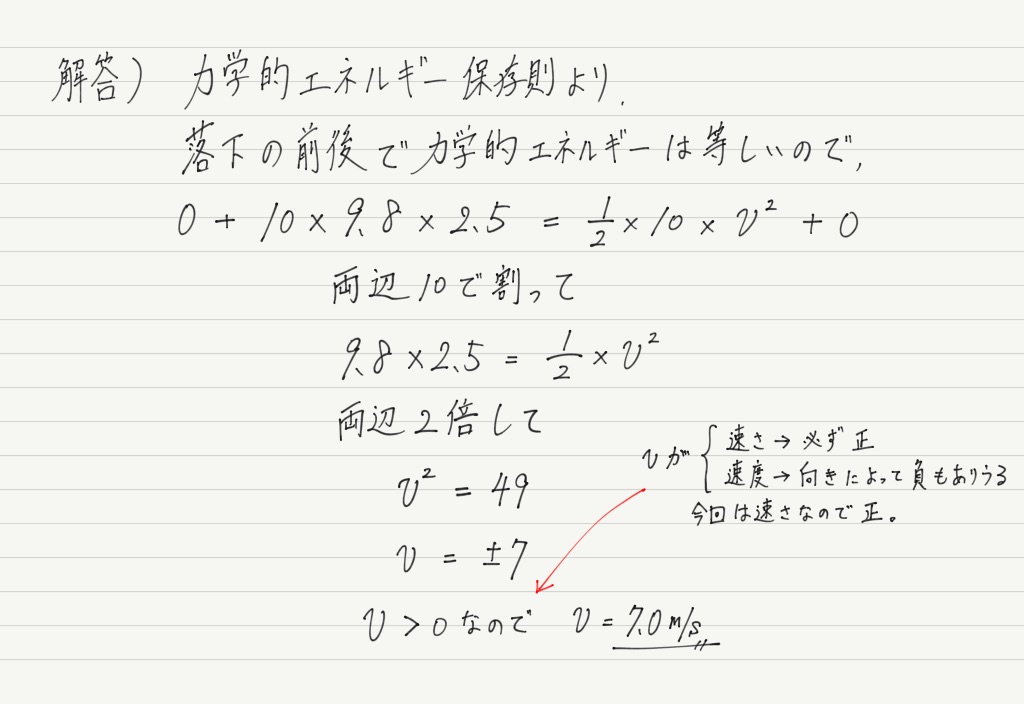 解答) 力学的エネルギー保存則より,
落下の前後で力学的エネルギーは等しいので,
0 + 10 × 9.8 × 2.5 = 1/2 × 10 × v² + 0
両辺10で割って
9.8 × 2.5 = 1/2 × v²
両辺2倍して
v² = 49
v = ±7
vが { 速さ→必ず正
速度→向きによって負もありうる
今回は速さなので正。
v > 0 なので v = 7.0 m/s